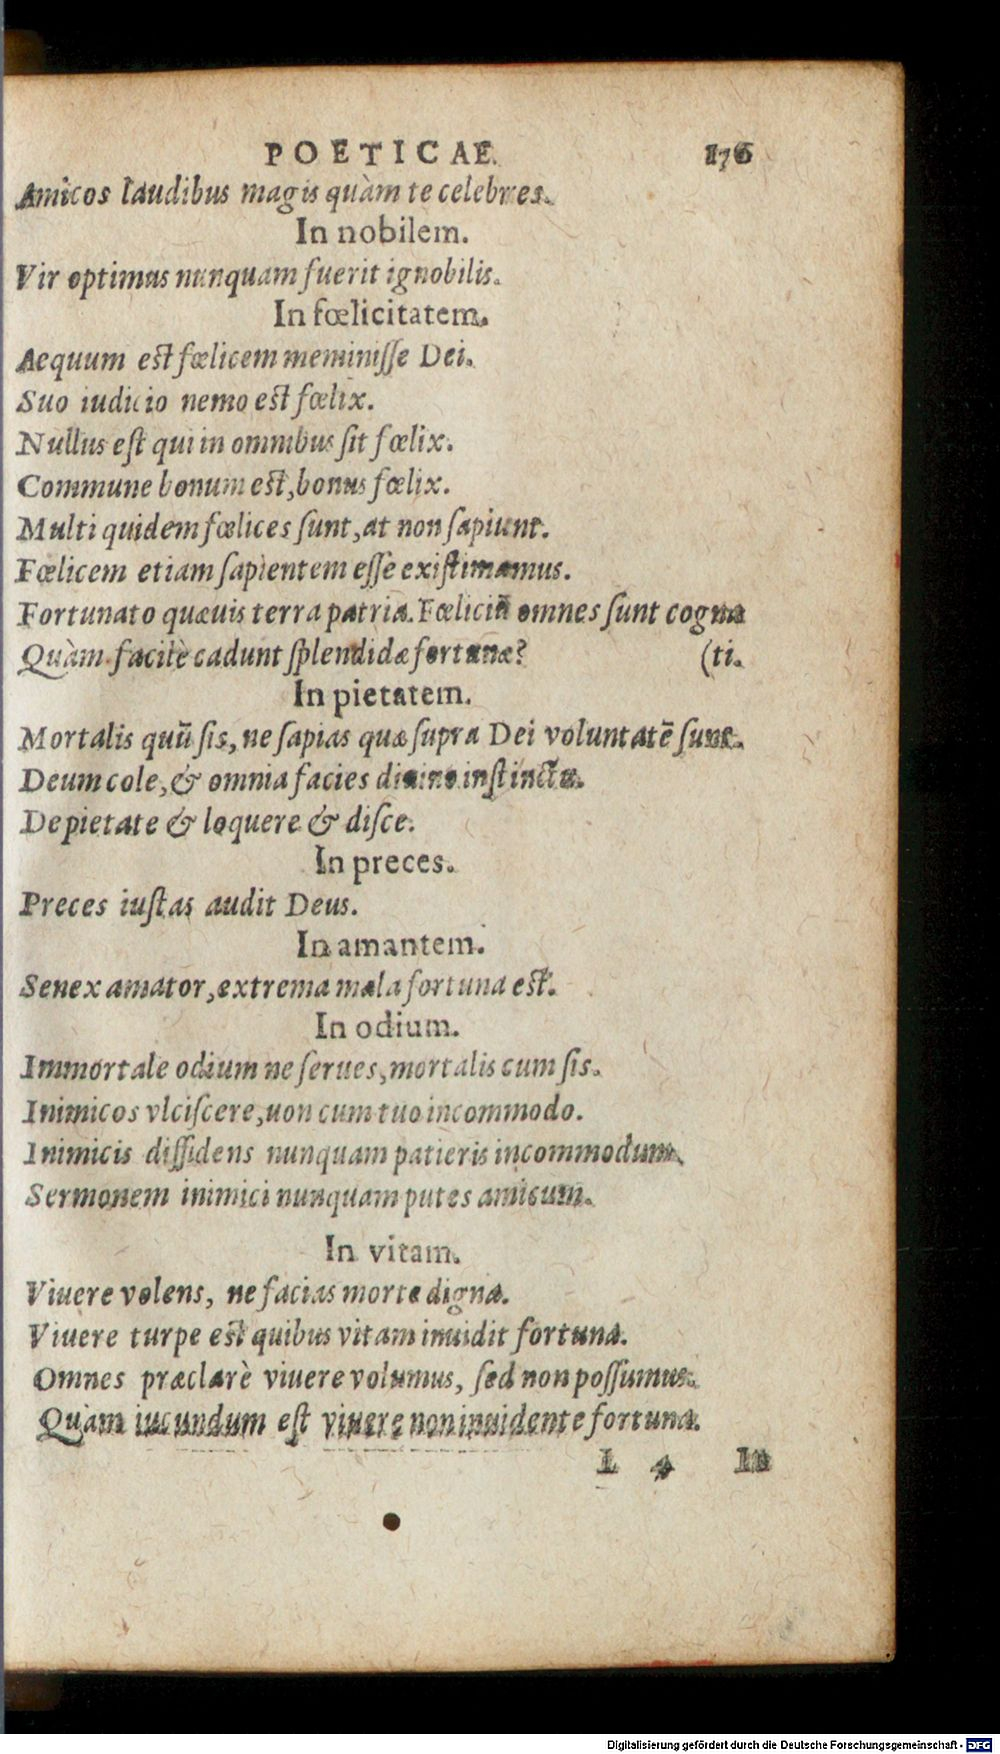 POETICAE. 176
Amicos laudibus magis quàm te celebres.
In nobilem.
Vir optimus nunquam fuerit ignobilis.
In fœlicitatem.
Aequum est fœlicem meminiſſe Dei.
Suo iudicio nemo est fœlix.
Nullus eſt qui in omnibus ſit fœlix.
Commune bonum est, bonus fœlix.
Multi quidem fœlices ſunt, at non ſapiunt.
Fœlicem etiam ſapientem eſſe exiſtimamus.
Fortunato quæuis terra patria. Fœliciũ omnes ſunt cogna
Quàm facilè cadunt ſplendidæ fortunæ? (ti.
In pietatem.
Mortalis quũ ſis, ne ſapias quæ ſupra Dei voluntatẽ ſunt.
Deum cole, & omnia facies diuino inſtinctu.
De pietate & loquere & diſce.
In preces.
Preces iuſtas audit Deus.
In amantem.
Senex amator, extrema mala fortuna est.
In odium.
Immortale odium ne ſerues, mortalis cum ſis.
Inimicos vlciſcere, uon cum tuo incommodo.
Inimicis diſſidens nunquam patieris incommodum.
Sermonem inimici nunquam putes amicum.
In vitam.
Viuere volens, ne facias morte digna.
Viuere turpe est quibus vitam inuidit fortuna.
Omnes præclarè viuere volumus, ſed non poſſumus.
Quàm iucundum eſt viuere non inuidente fortuna.
L 4 In
Digitalisierung gefördert durch die Deutsche Forschungsgemeinschaft - DFG